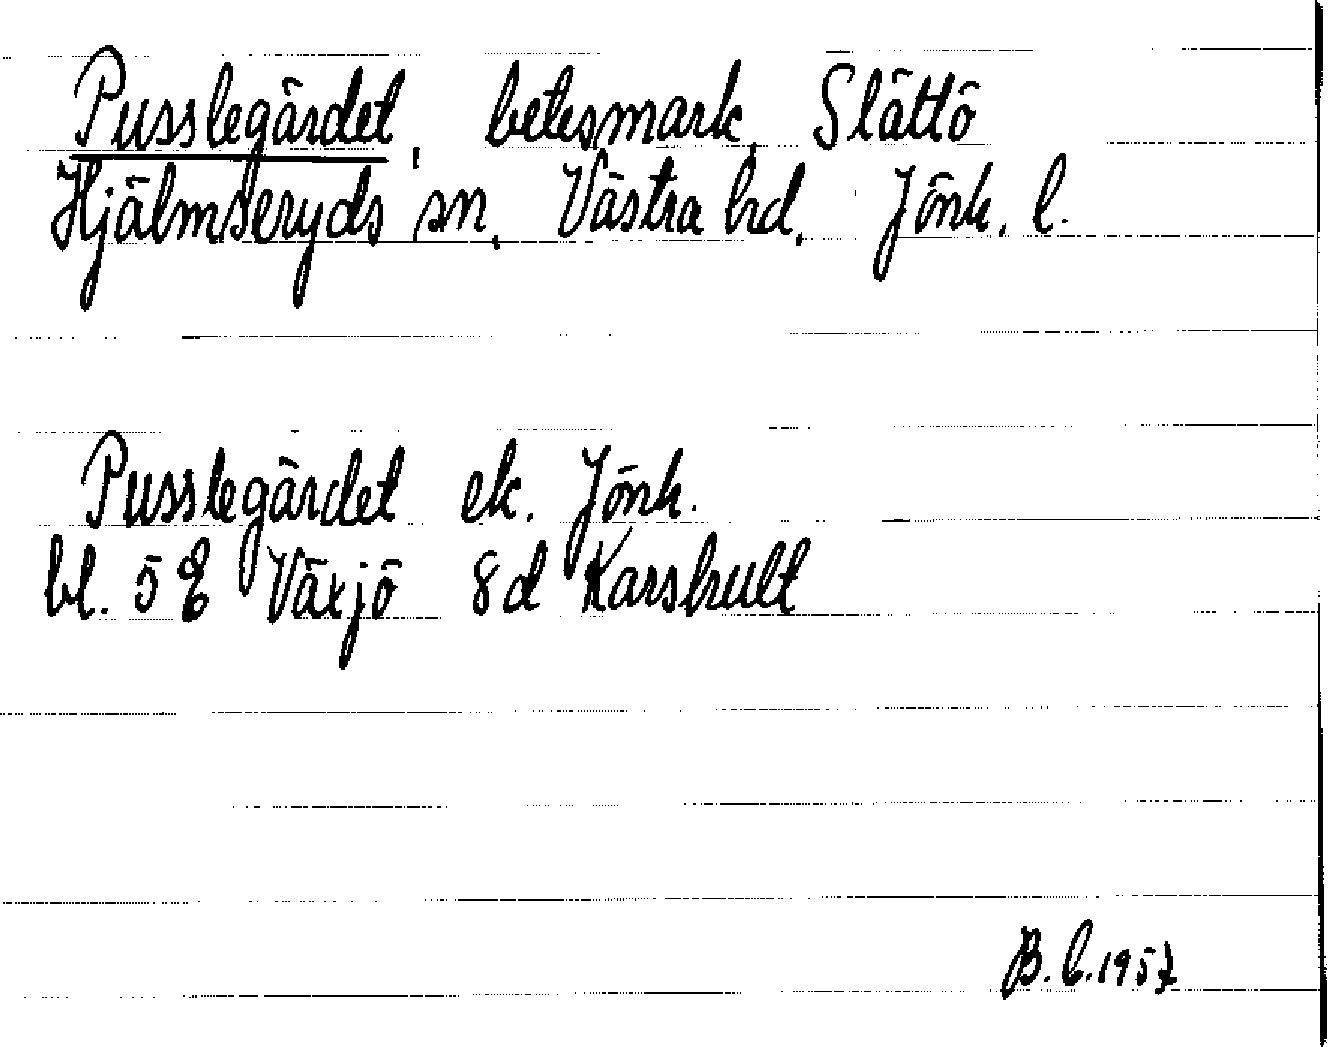 Pusslegärdet, betesmark, Slättö
Hjälmseryds sn, Västra hd, Jönk. l.
Pusslegärdet ek. Jönk.
bl. 5 E Växjö 8d Karshult
B.C.1957